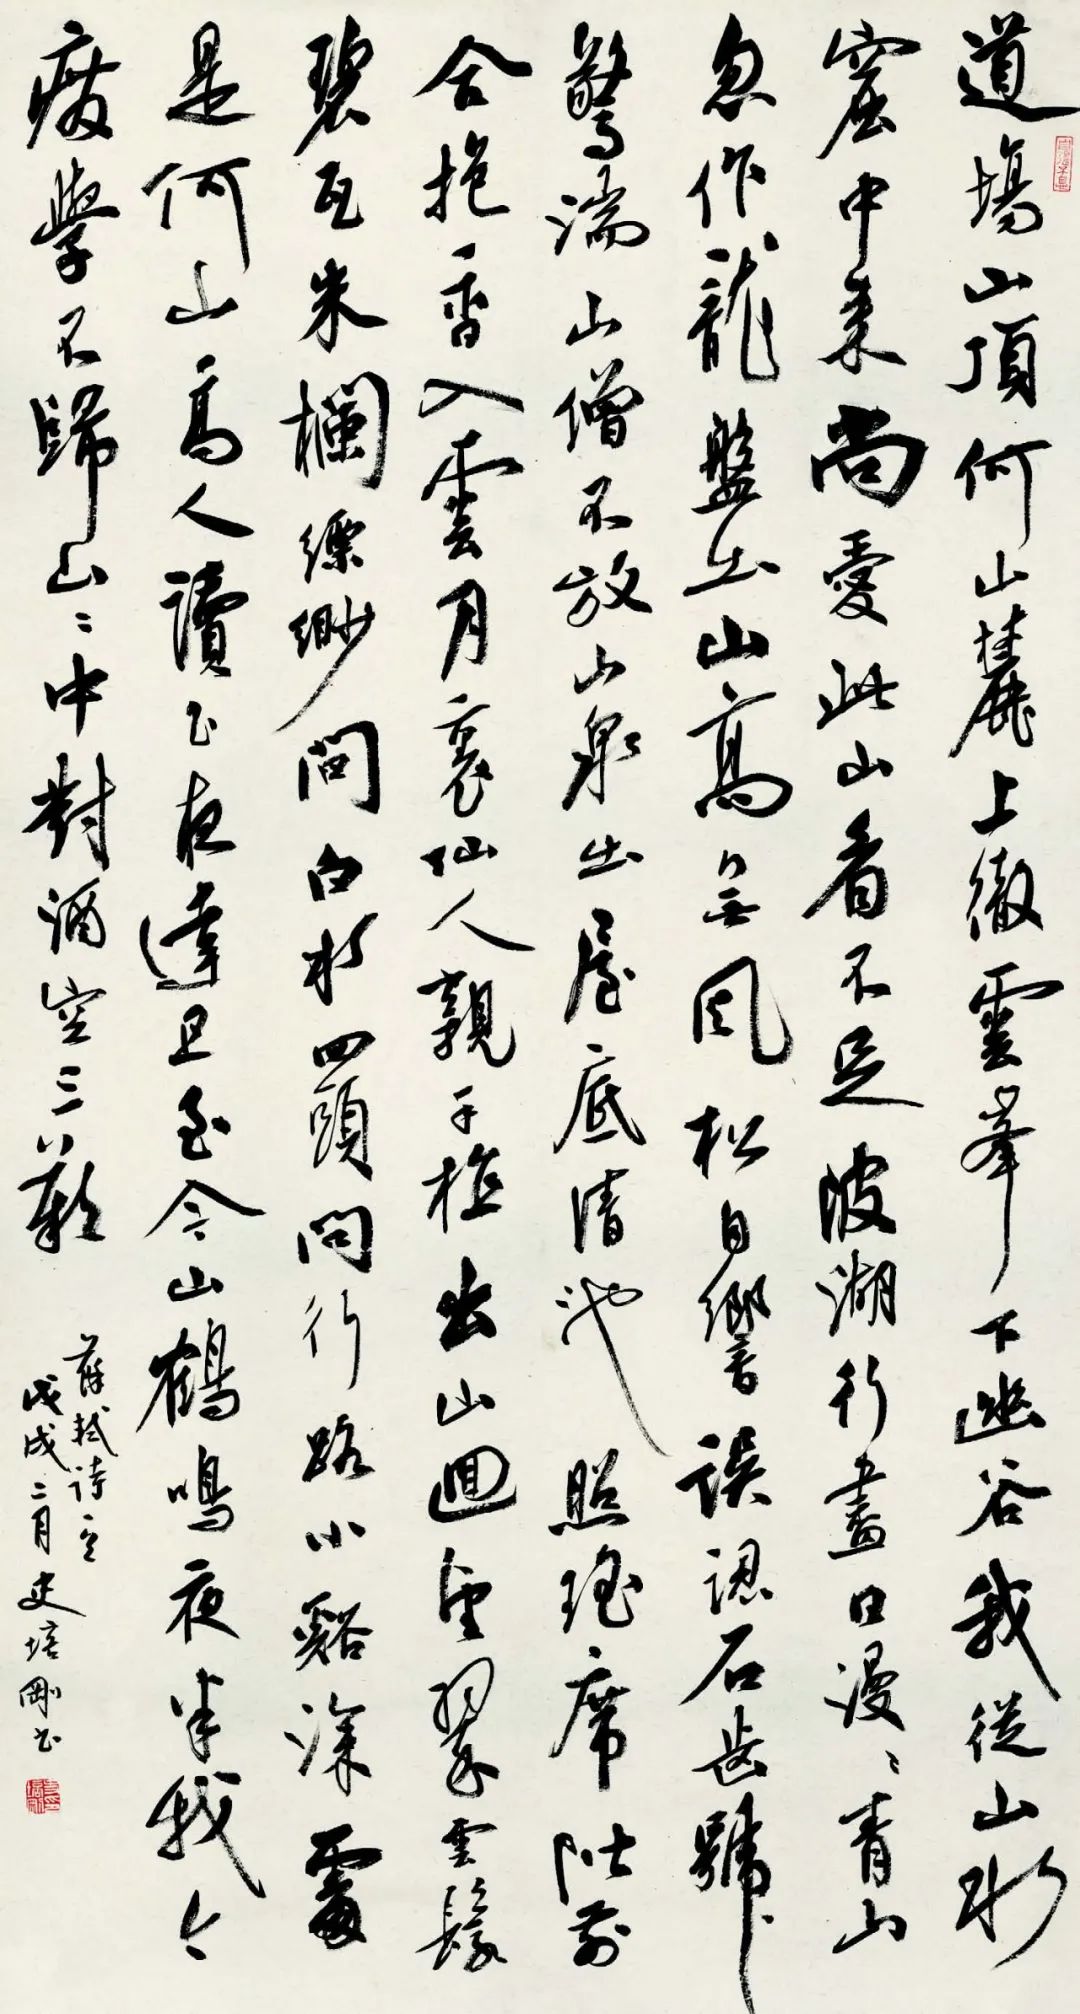 道場山頂何山麓上徹雲峯下幽谷我從山水
窟中来尚愛此山看不足陂湖行盡白漫〻青山
忽作龍盤出山高无風松自響誤認石齿號
驚湍山僧不放山泉出屋底清池照瑶席阶前
合抱香入雲月裏仙人親手植出山迴望翠雲鬟
碧瓦朱欄縹緲間白水田頭問行路小谿深處
是何山高人讀书夜達旦至今山鶴鳴夜半我今
癈學不歸山〻中對酒空三歎
蘇軾詩
戊戌二月史培剛书